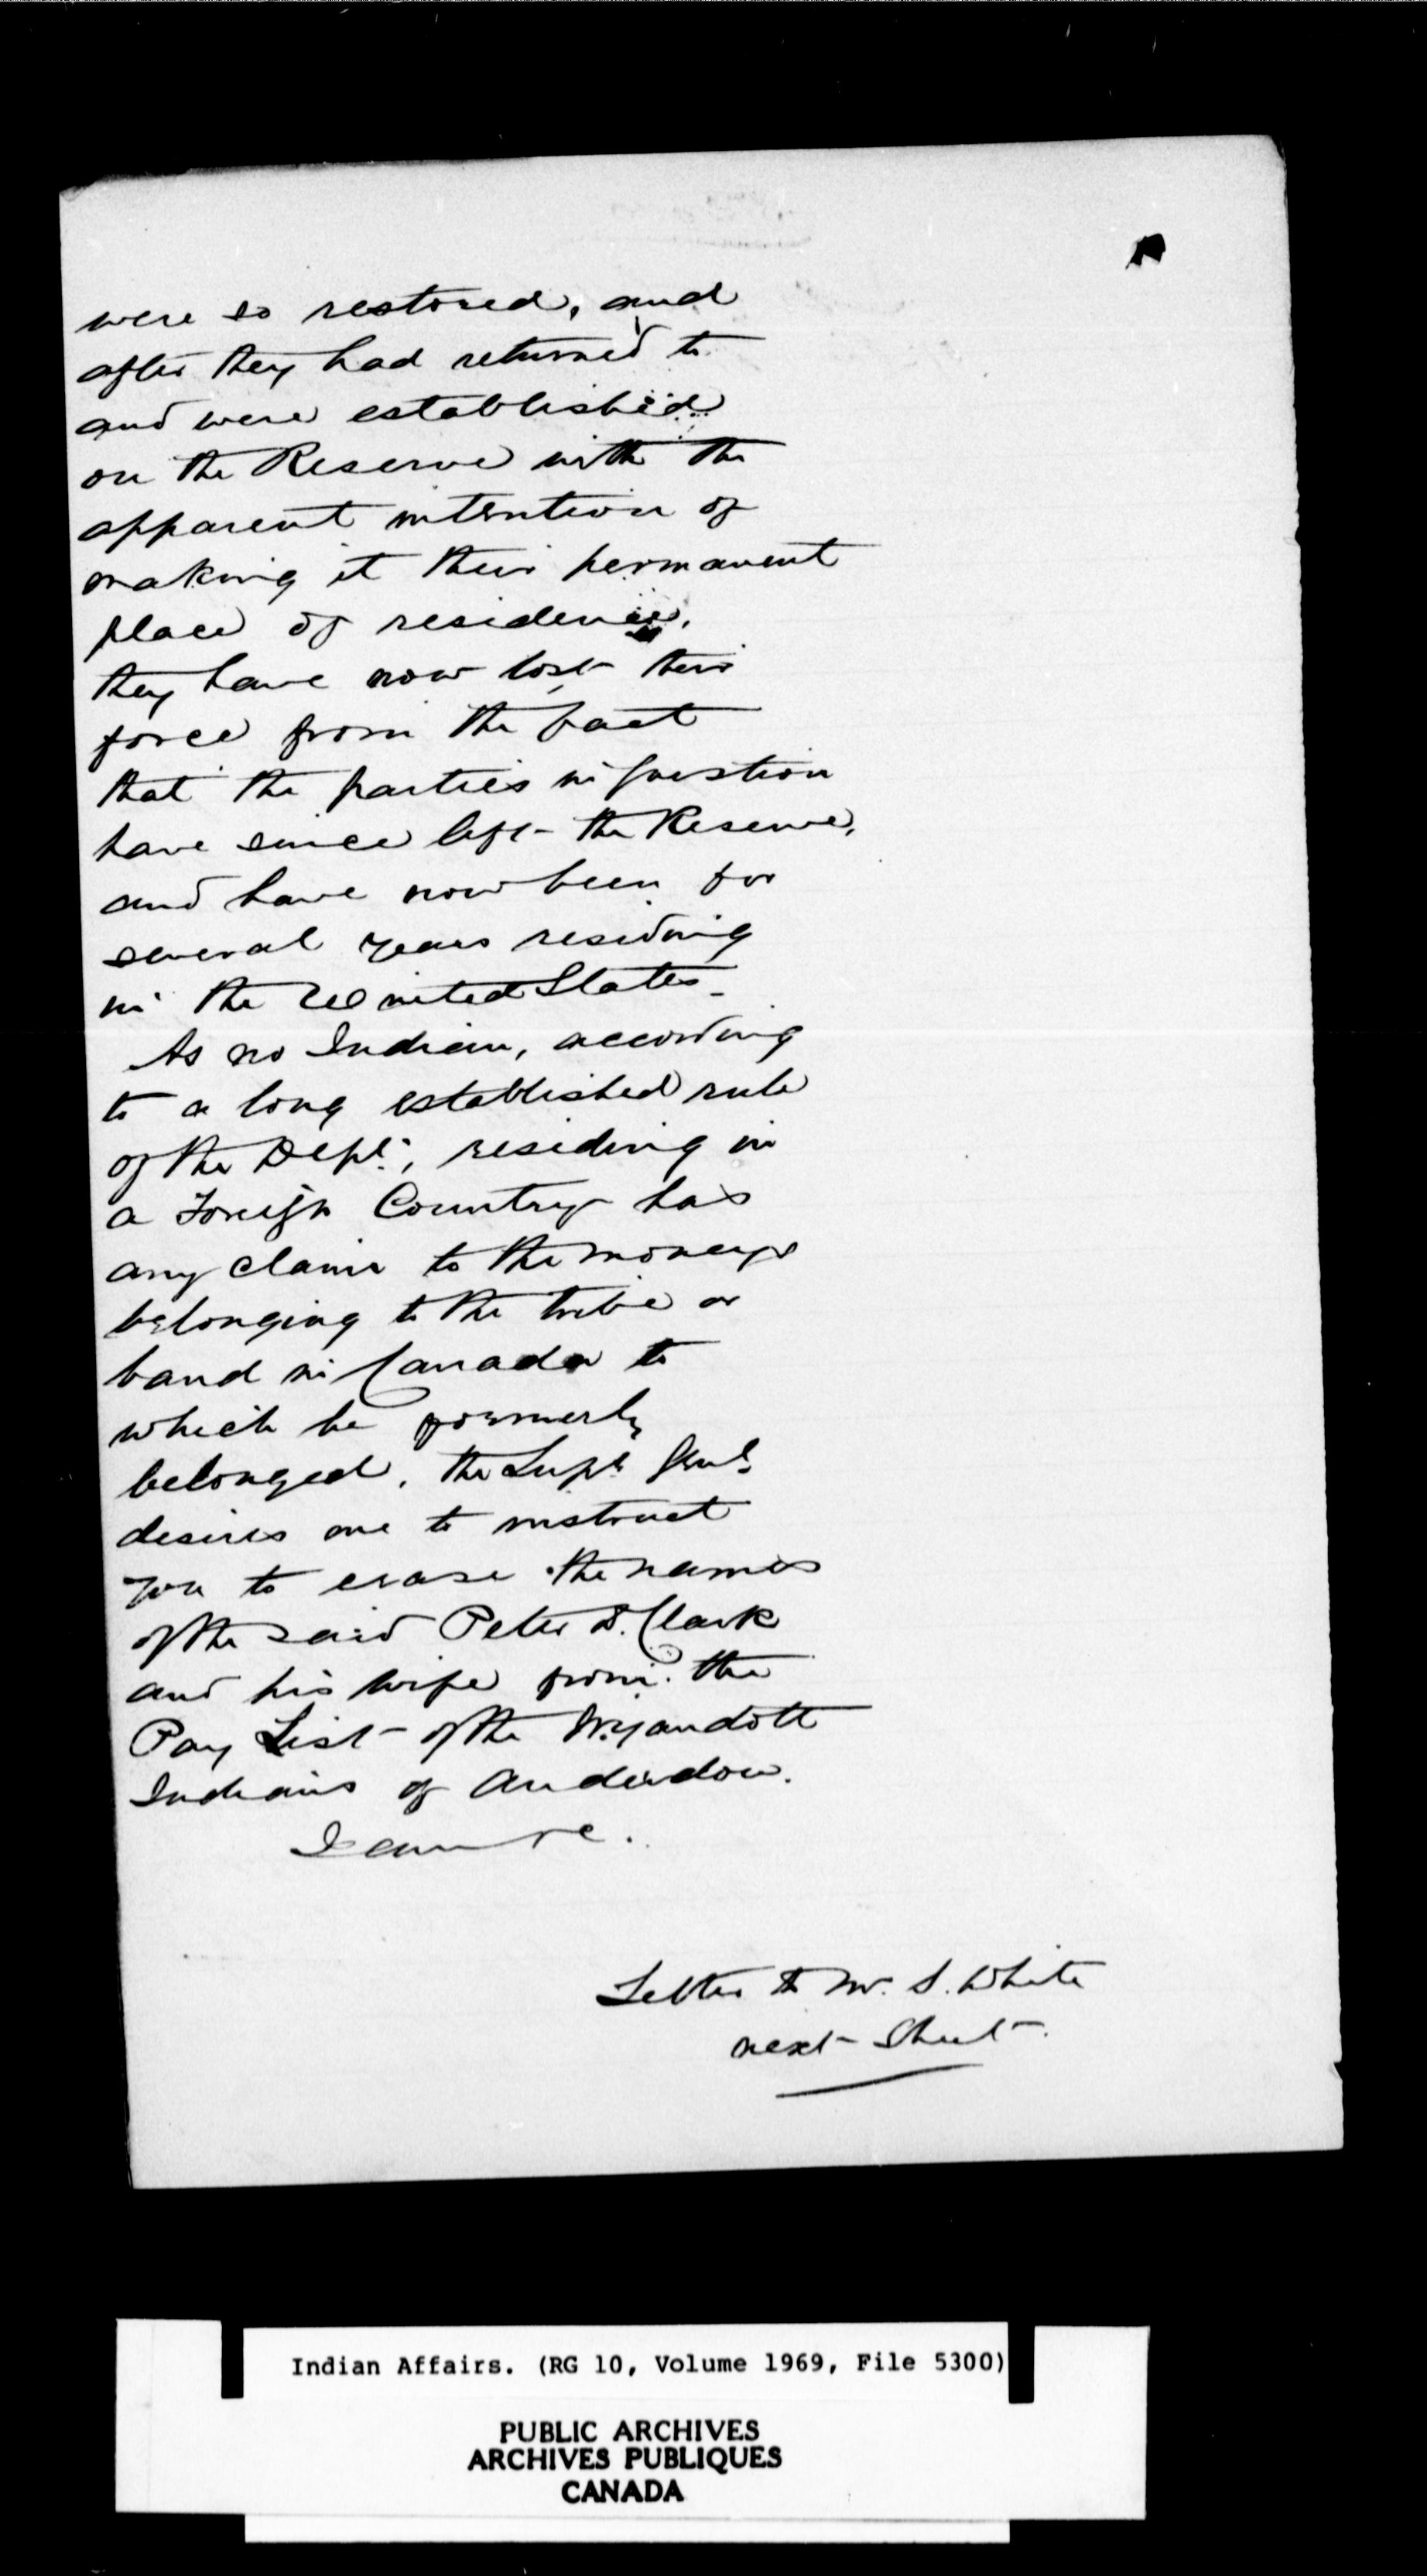 were so restored, and
after they had returned to
and were established
on the Reserve with the
apparent intention of
making it their permanent
place of residence,
they have now lost their
force from the fact
that the parties in question
have since left the Reserve,
and have now been for
several years residing
in the United States_
As no Indian, according
to a long established rule
of the Dept., residing in
a Foreign Country has
any claim to the moneys
belonging to the tribe or
band in Canada to
which he formerly
belonged, the Supt. Genl.
desires me to instruct
you to erase the names
of the said Peter D. Clark
and his wife from the
Pay List of the Wyandott
Indians of Anderdon.
I am &c.
Letter to Mr. S. White
next Sheet.
Indian Affairs. (RG 10, Volume 1969, File 5300)
PUBLIC ARCHIVES
ARCHIVES PUBLIQUES
CANADA